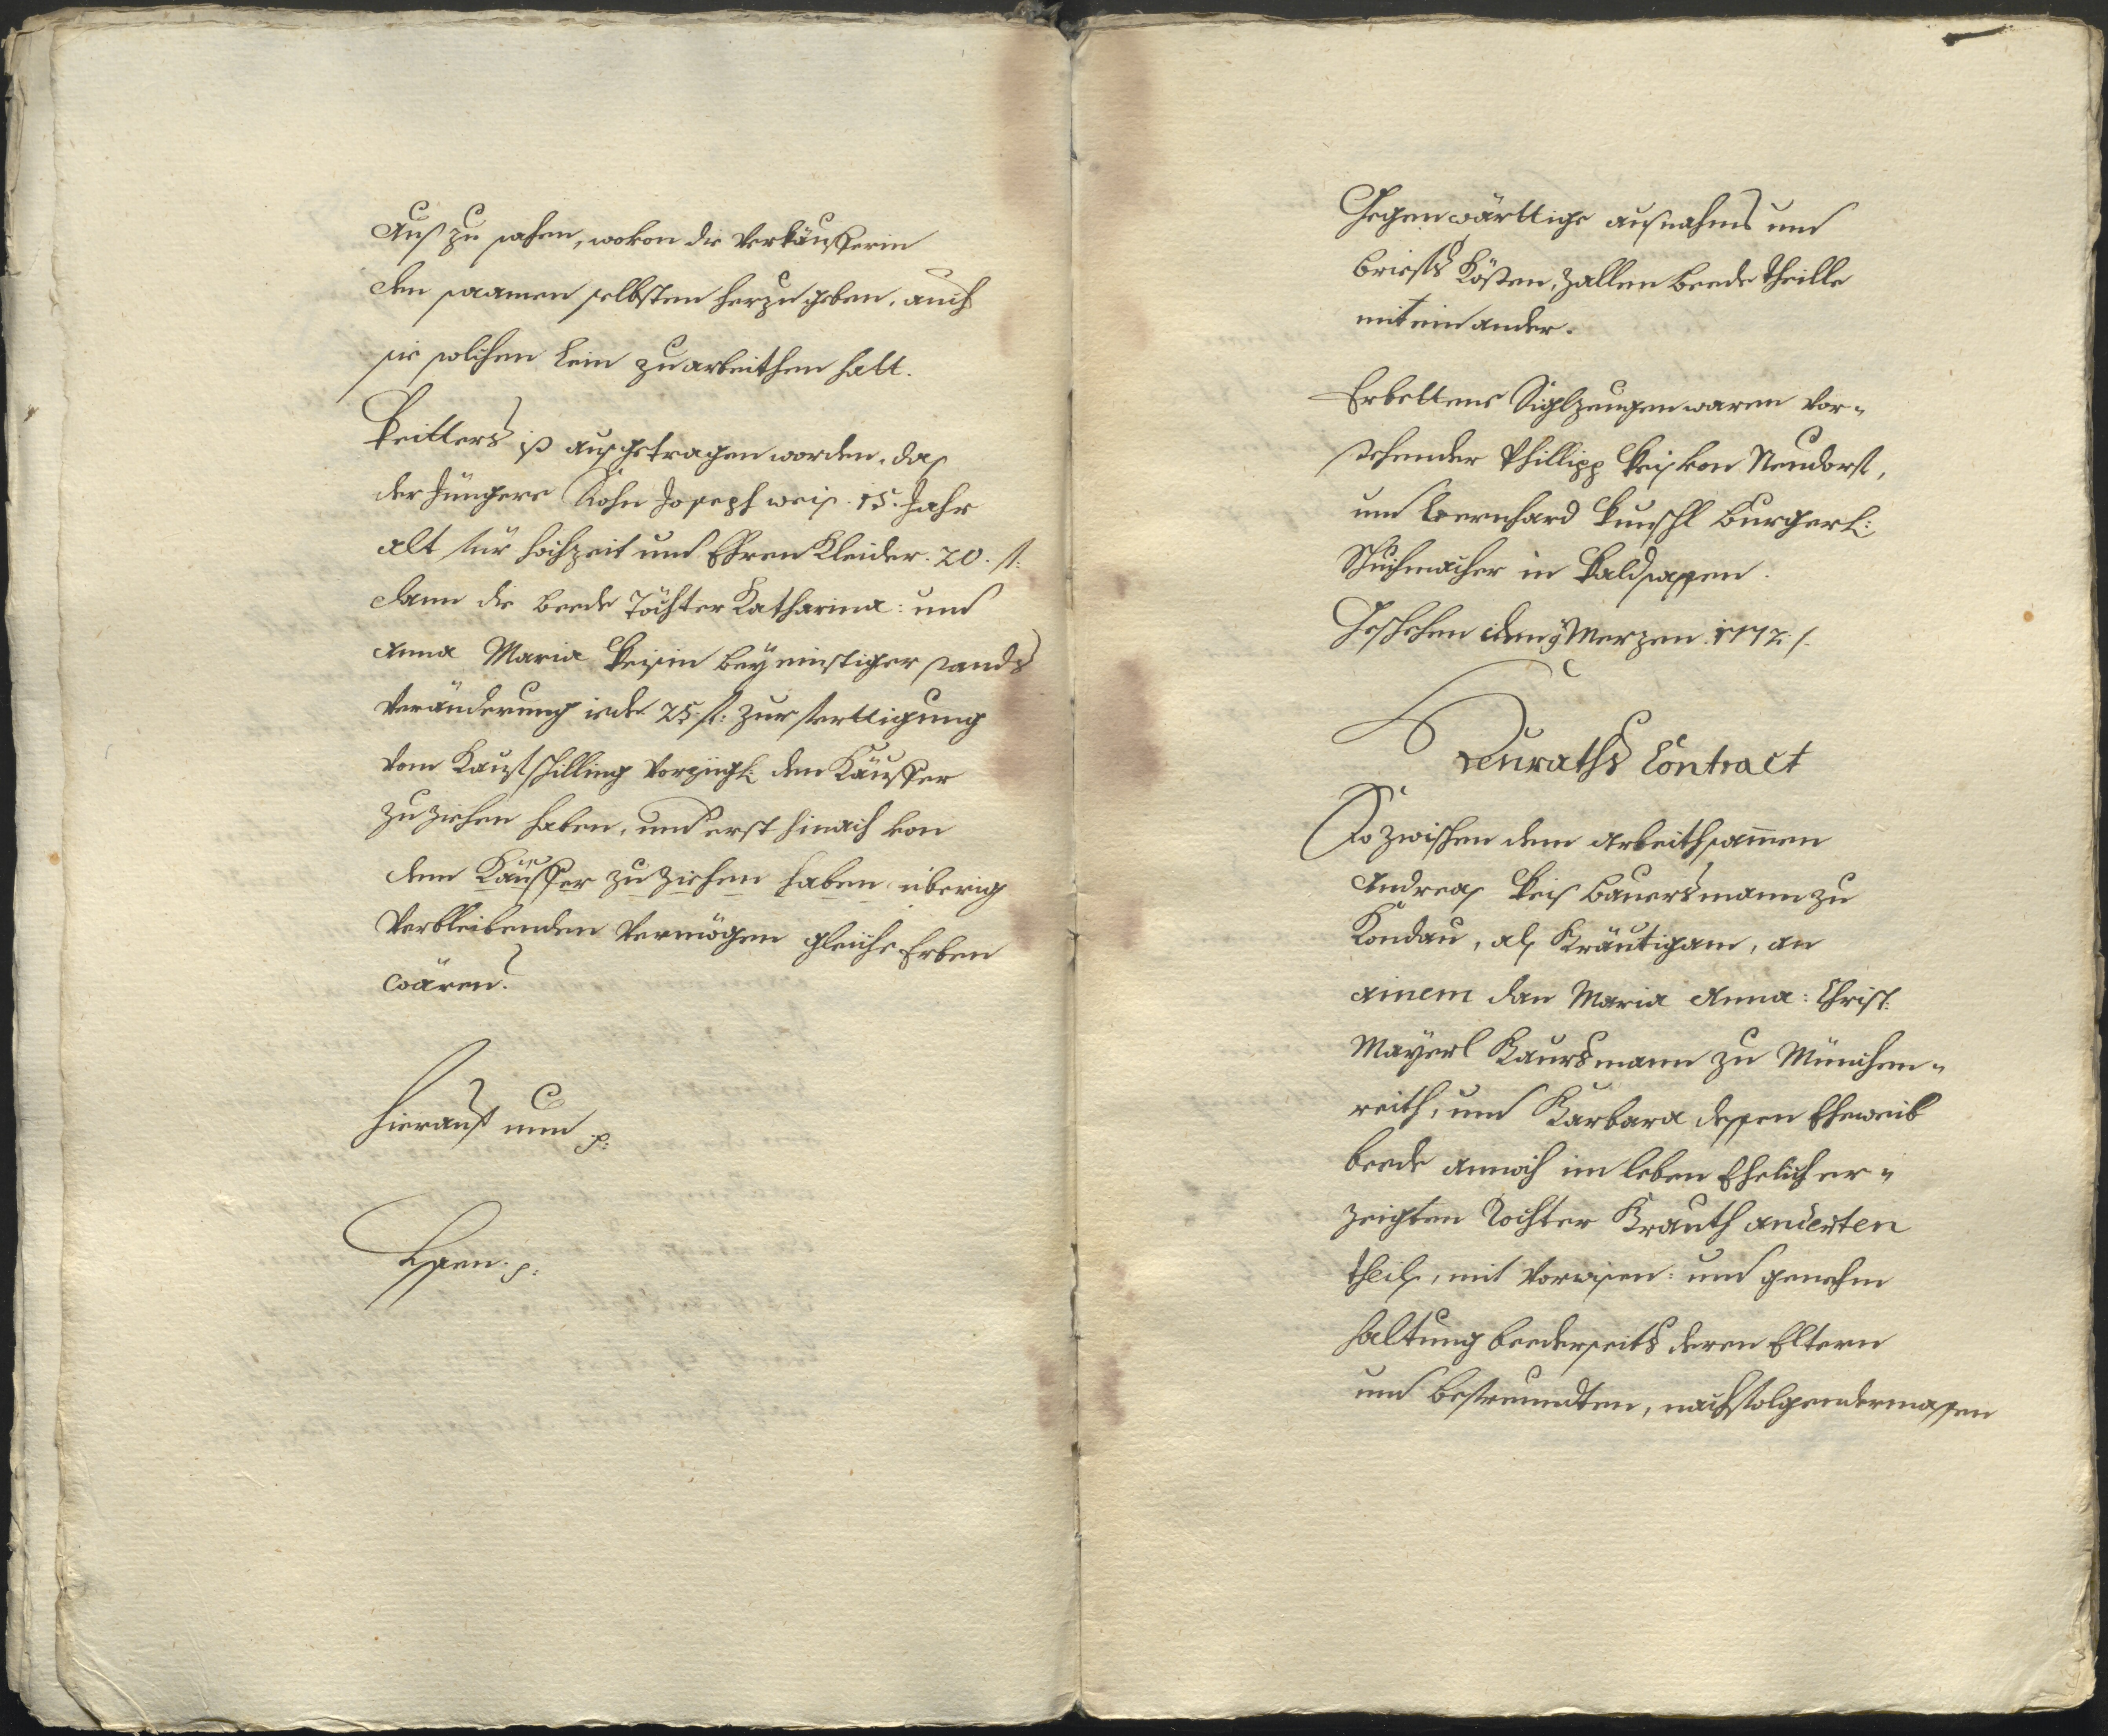 Aus zu sähen, wovon die Verkäufferin
den saamen selbsten herzugeben, auch
sie solchen Lein zuarbeithen hatt.
Weitters ist ausgetragen worden, das
der Jüngere Sohn Joseph weis. 15. Jahr
alt für hochzeit und Ehren Kleider. 20. f:
dann die beede Töchter Katharina: und
Anna Maria Weisin bey einstiger stands
Veränderung iede 25. f: zur fertigung
vom Kaufschilling vorzügl: den Käuffer
zu ziehen haben, und erst hinach von
dem Käuffer zu ziehen haben übrig
Verbleibenden Vermögen gleiche Erben
wären.
Hierauf nun p:
Essen. p:
Gegenwärttige ausnahms und
briefs Kösten, zallen beede theille
mit einander.
Erbettene Siglzeugen waren vor-
stehender Phillipp Weis von Neudorf,
und Bernhard Punschl burgerl:
Schuhmacher in Waldsassen.
Geschehen den 9 Merzen 1772. /.
Heuraths Contract
So zwischen dem arbeithsamen
Andreas Weis bauersmann zu
Kondau, als Bräutigam, an
ainem dan Maria Anna: Christ:
Mayerl Baursmann zu München-
reith, und Barbara dessen Eheweib
beede annoch im leben Ehelich er-
zeigten Tochter Brauth anderten
theils, mit Vorwissen: und genehm
haltung beederseits deren Eltern
und befreundten, nachfolgendermassen